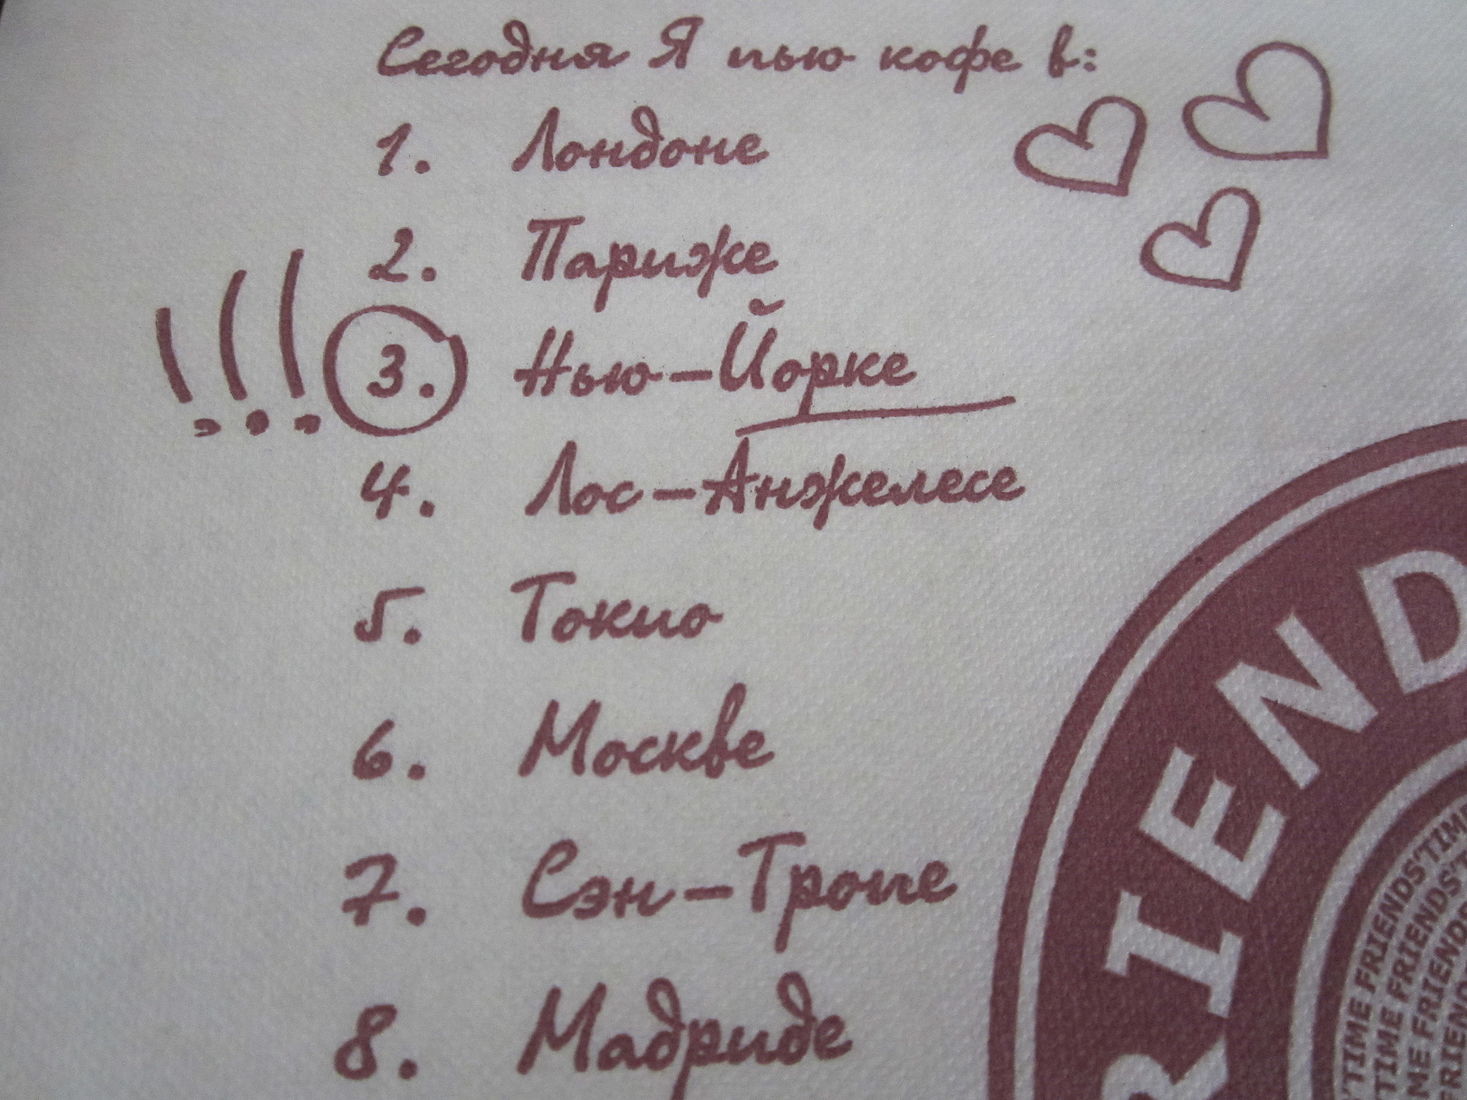 Сегодня Я пью кофе в:
1. Лондоне
2. Париже
!!! 3. Нью-Йорке
4. Лос-Анжелесе
5. Токио
6. Москве
7. Сэн-Тропе
8. Мадриде
RIEND
TIME FRIENDS'TIM
TIME FRIENDS'T
ME FRIENDS'
FRIEND